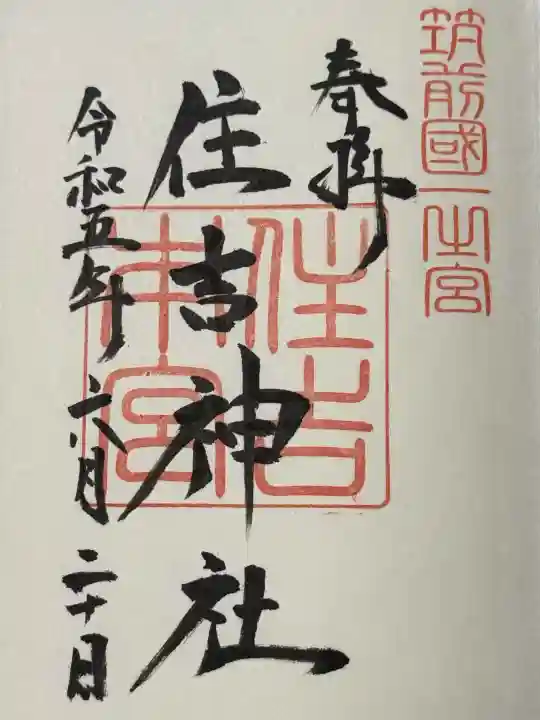 筑前國一之宮
奉拝
住吉神社
住吉本宮
令和五年六月二十日